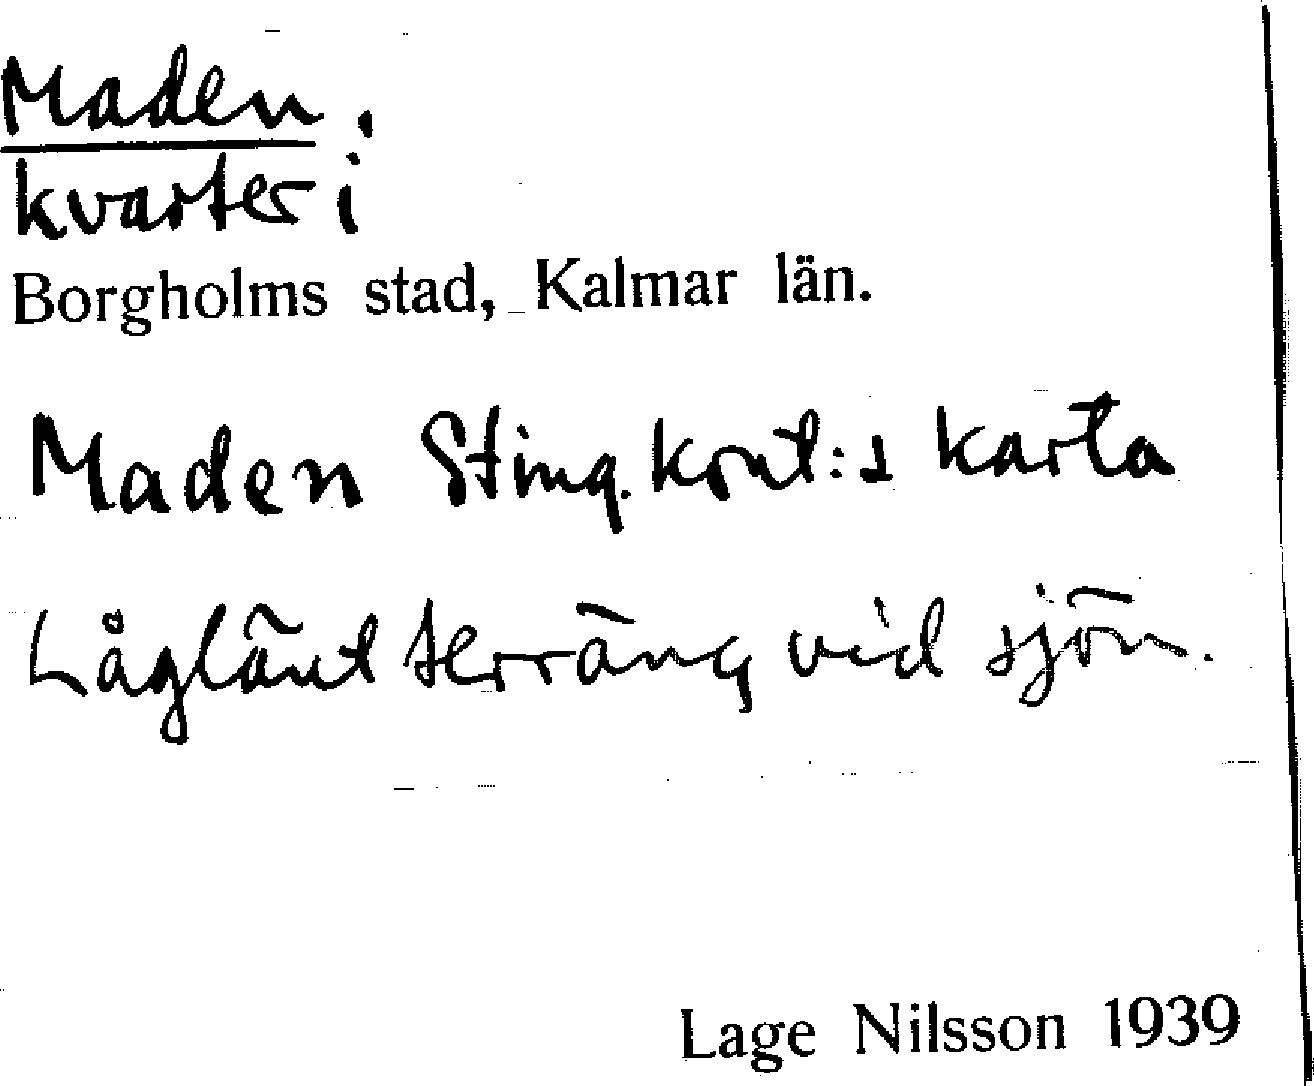 Maden,
kvarter i
Borgholms stad, Kalmar län.
Maden Sting. kont:s karta
Låglänt terräng vid sjön.
Lage Nilsson 1939